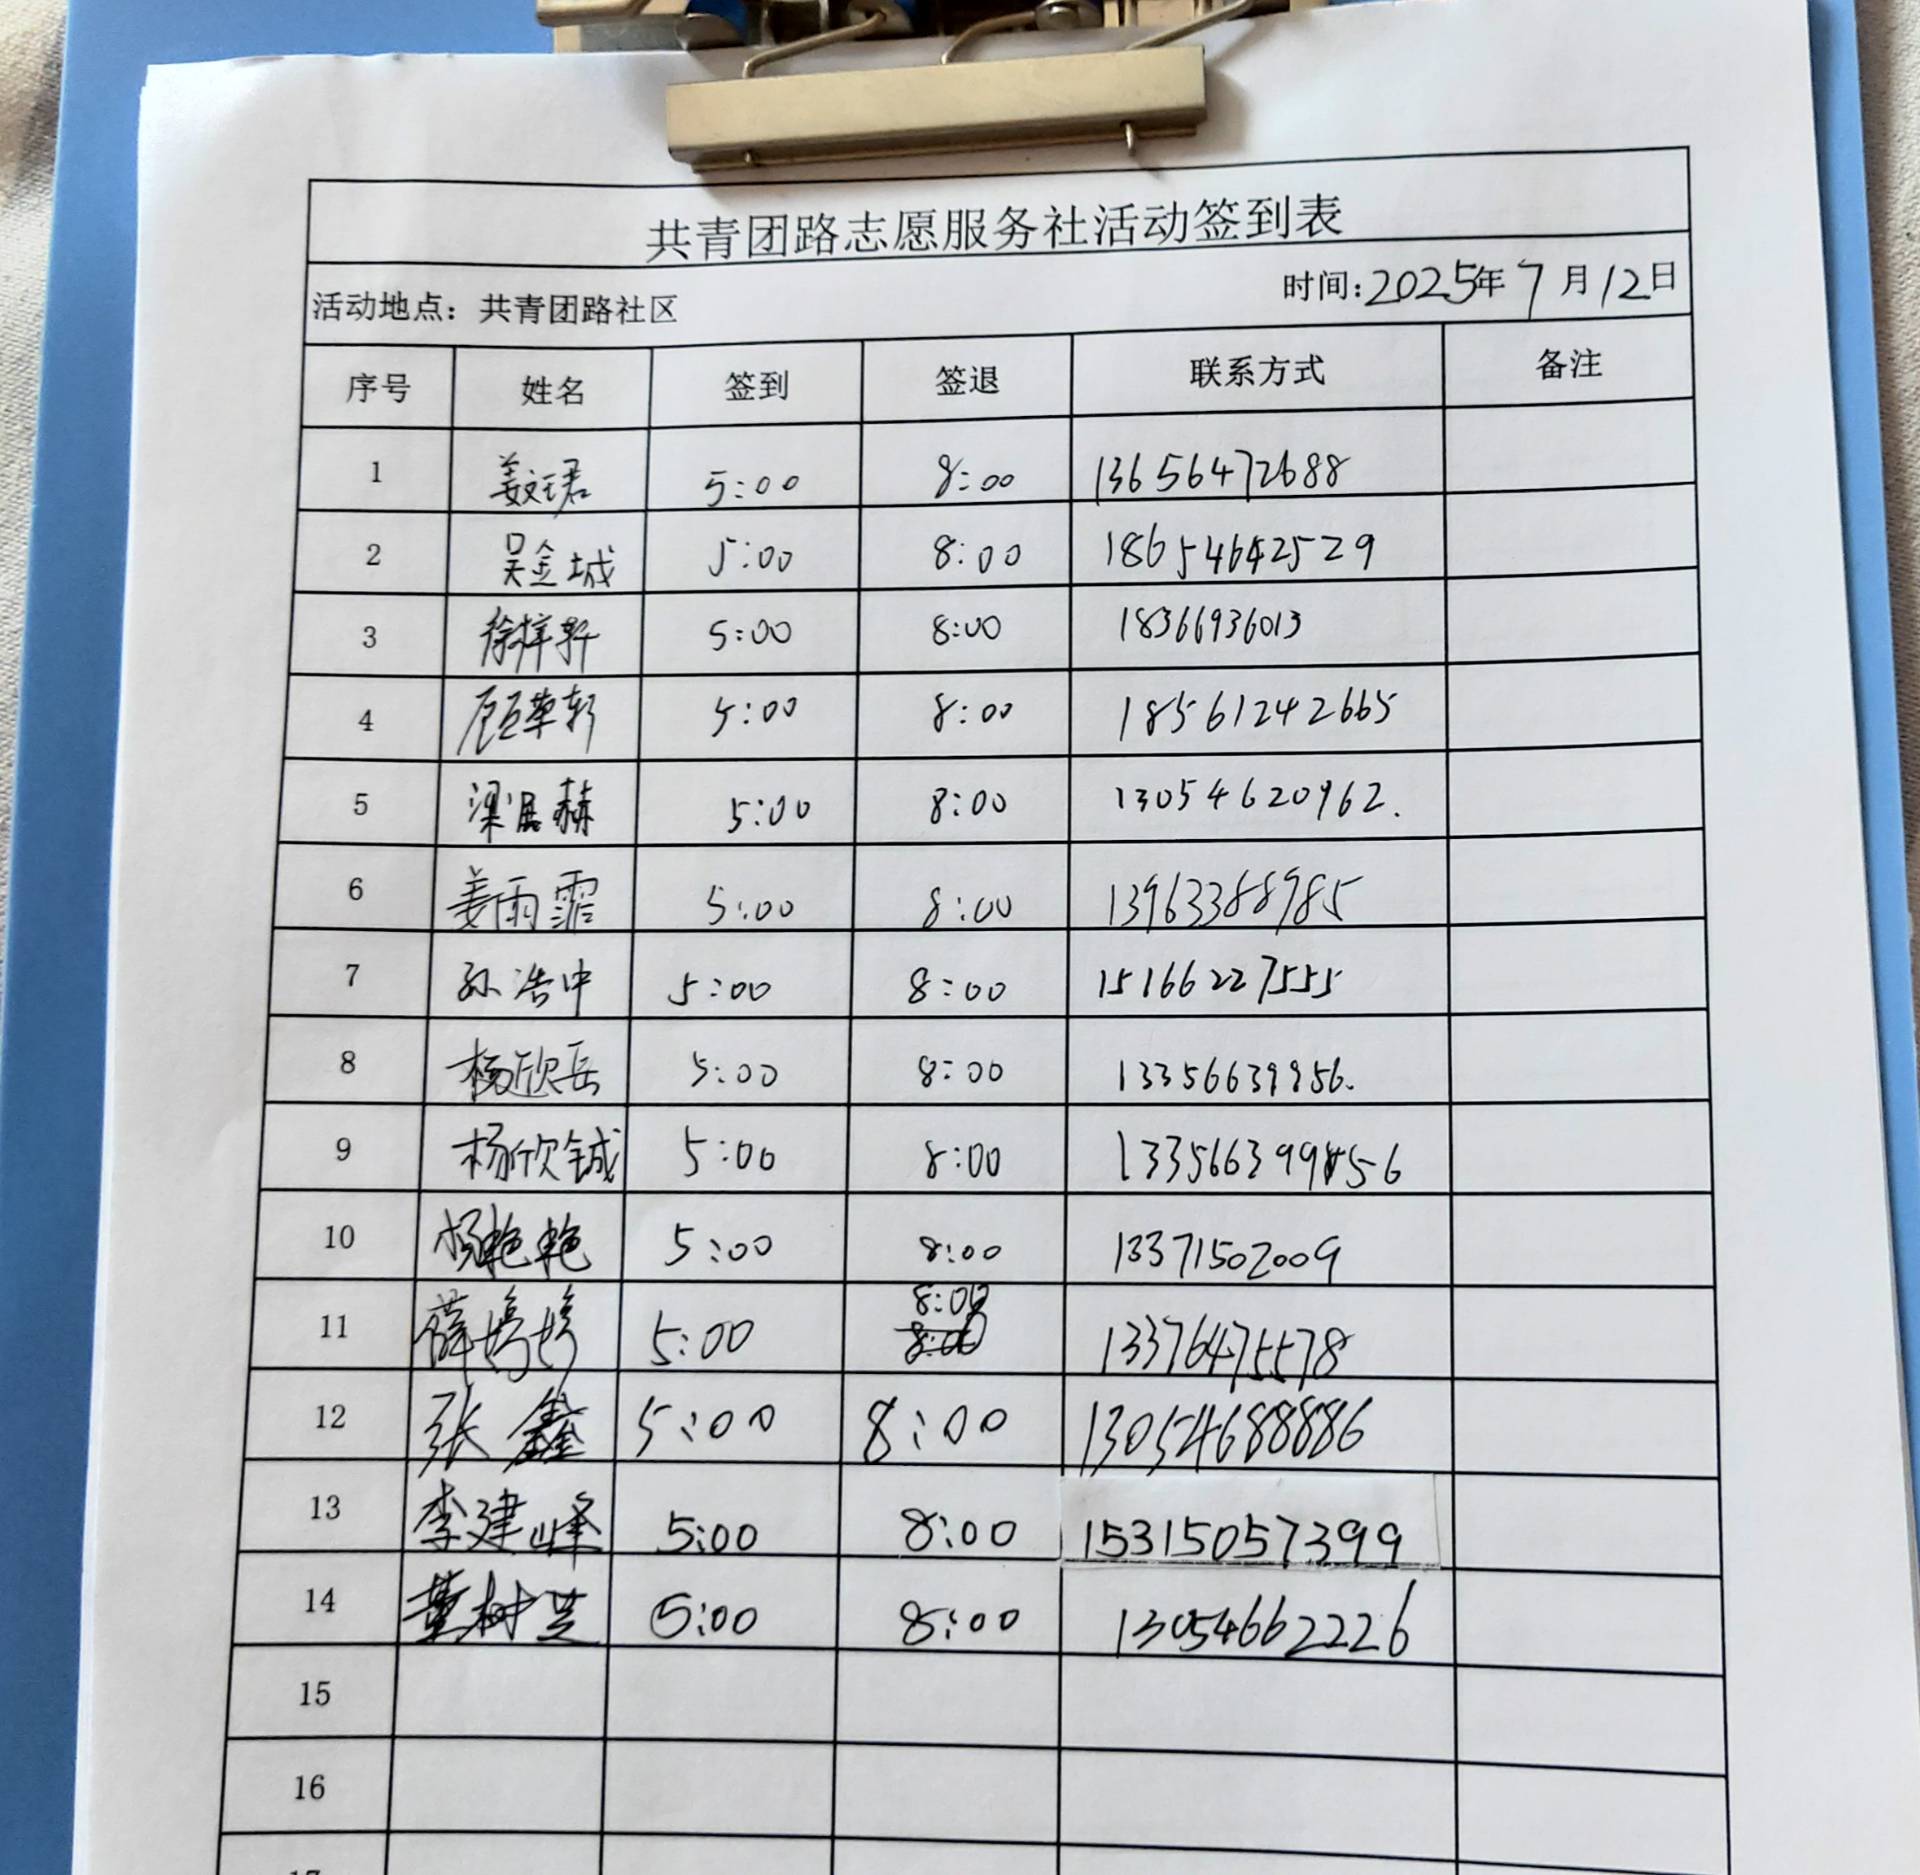 共青团路志愿服务社活动签到表
活动地点：共青团路社区 时间:2025年7月12日
序号 姓名 签到 签退 联系方式 备注
1 姜文珺 5:00 8:00 13656472688
2 吴金城 5:00 8:00 18654642529
3 徐梓轩 5:00 8:00 18366936013
4 5:00 8:00 18561242665
5 梁展赫 5:00 8:00 13054620962.
6 姜雨霏 5:00 8:00 13963388985
7 孙浩中 5:00 8:00 15166227555
8 杨欣岳 5:00 8:00 13356639956.
9 杨欣铖 5:00 8:00
10 杨艳艳 5:00 8:00 13371502009
11 薛婷婷 5:00 8:00 13376475578
12 张鑫 5:00 8:00 13054688886
13 李建峰 5:00 8:00 15315057399
14 董树芝 5:00 8:00 13054662226
15
16